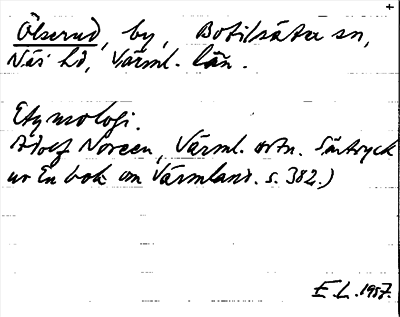 Ölserud, by, Botilsäter sn,
Näs hd, Värml. län.
Etymologi.
Adolf Noreen, Värml. ortn. Särtryck
ur En bok om Värmland. s. 382.)
E. L. 1957.